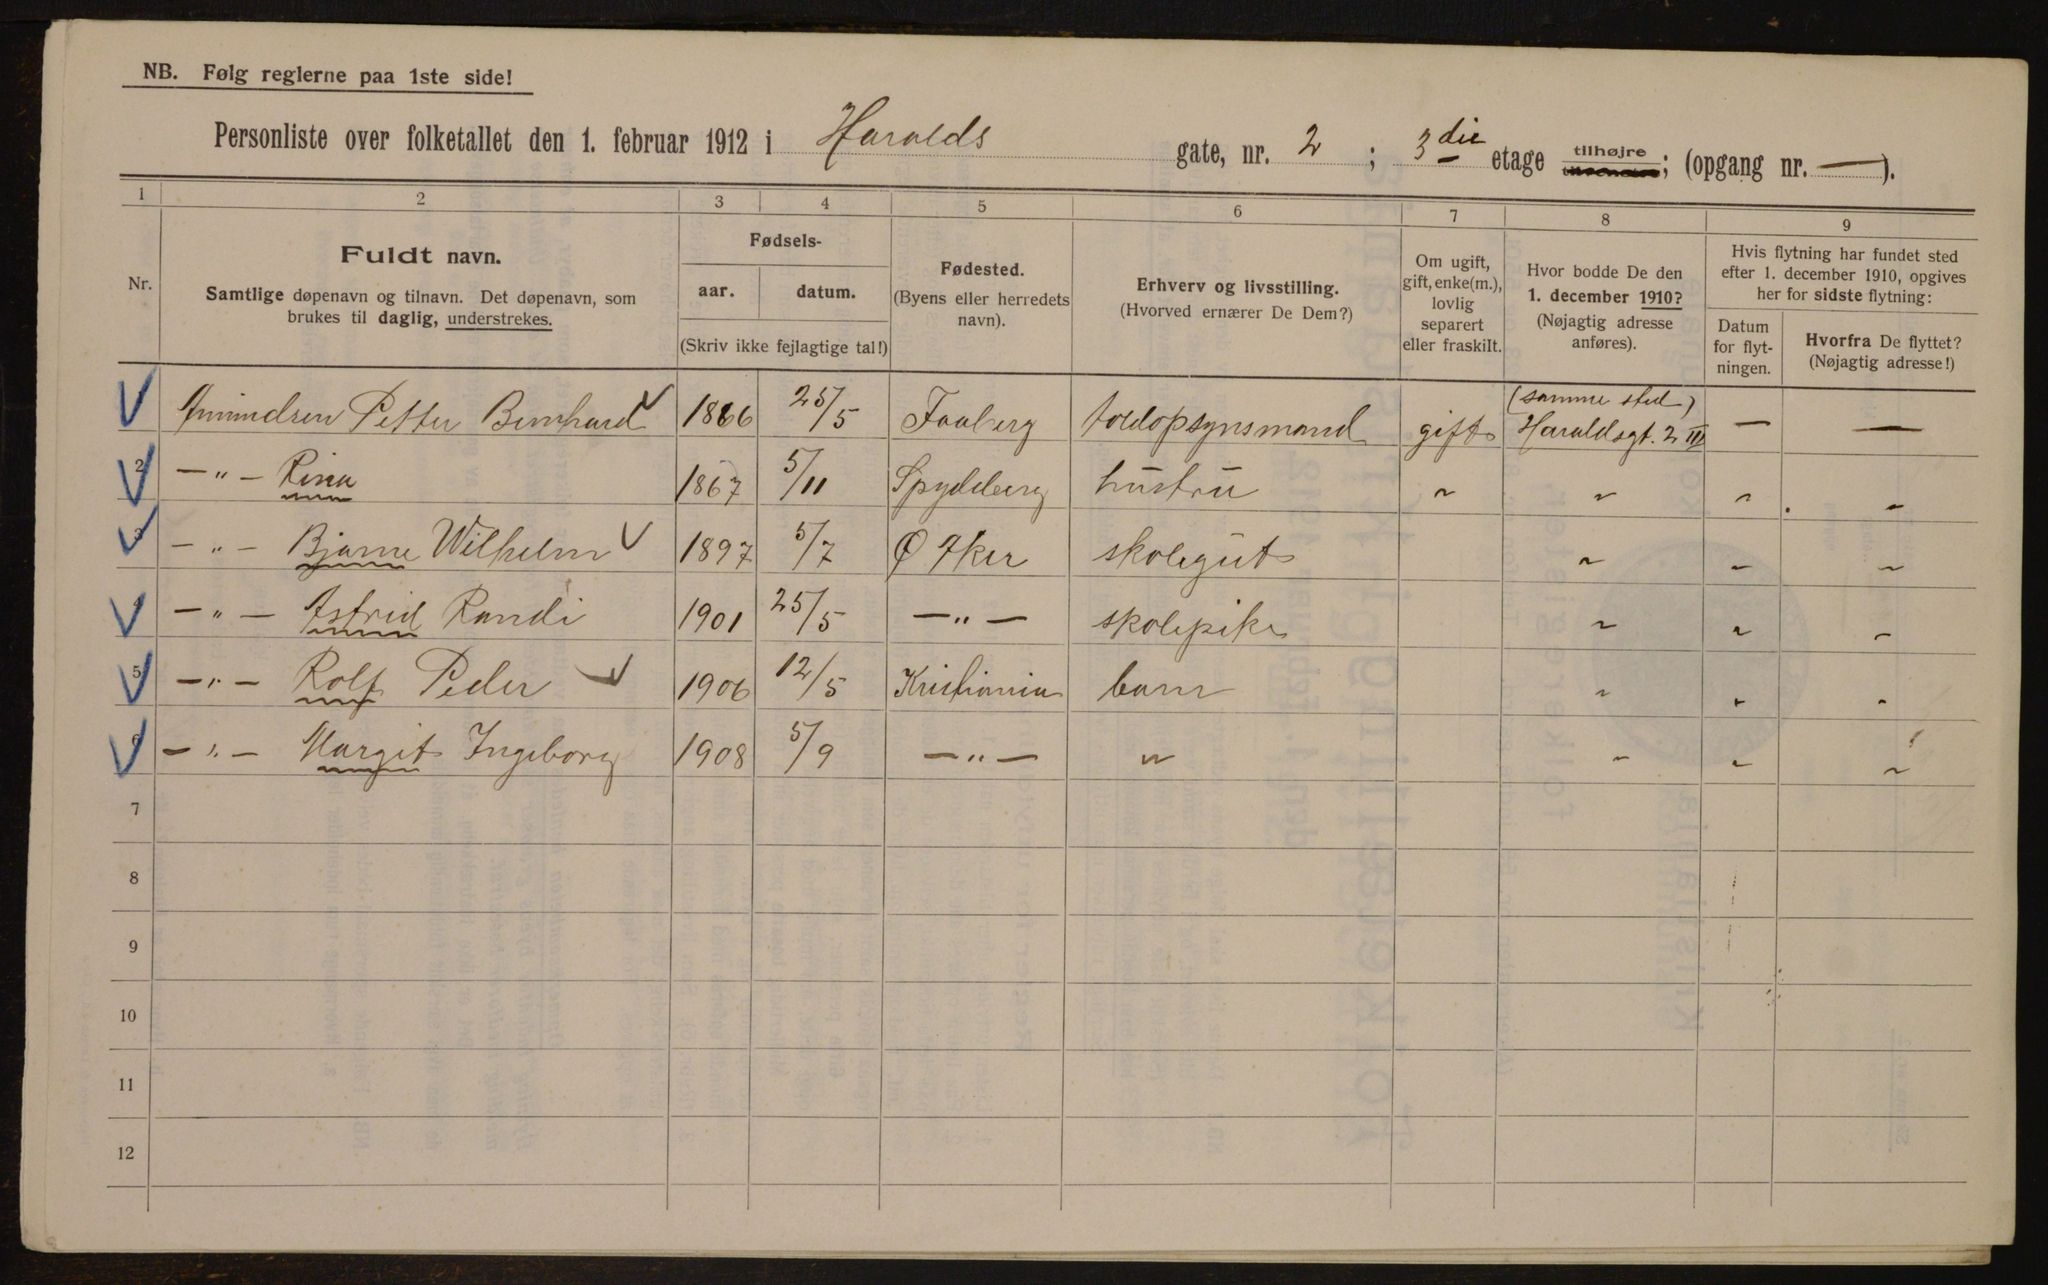 NB. Følg reglerne paa 1ste side!
Personliste over folketallet den 1. februar 1912 i Haralds gate, nr. 2 ; 3die etage tilhøjre ; (opgang nr. — ).
1 2 3 4 5 6 7 8 9
Nr.
Fuldt navn.
Samtlige døpenavn og tilnavn. Det døpenavn, som
brukes til daglig, understrekes.
Fødsels-
aar. datum.
(Skriv ikke fejlagtige tal!)
Fødested.
(Byens eller herredets
navn).
Erhverv og livsstilling.
(Hvorved ernærer De Dem?)
Om ugift,
gift, enke(m.),
lovlig
separert
eller fraskilt.
Hvor bodde De den
1. december 1910?
(Nøjagtig adresse
anføres).
Hvis flytning har fundet sted
efter 1. december 1910, opgives
her for sidste flytning:
Datum
for flyt-
ningen.
Hvorfra De flyttet?
(Nøjagtig adresse!)
(samme sted)
Amundsen Petter Bernhard 1866 25/5 Faaberg toldopsynsmand gift Haraldsgt. 2 III — —
2 —„— Rina 1867 5/11 Spydeberg hustru „ „ „ „
3 —„— Bjarne Wilhelm 1897 5/7 Ø Aker skolegut „ „ „
4 —„— Astrid Randi 1901 25/5 —„— skolepike „ „ „
5 —„— Rolf Peder 1906 12/5 Kristiania barn „ „ „
6 —„— Margit Ingeborg 1908 5/9 —„— „ „ „ „
7
8
9
10
11
12